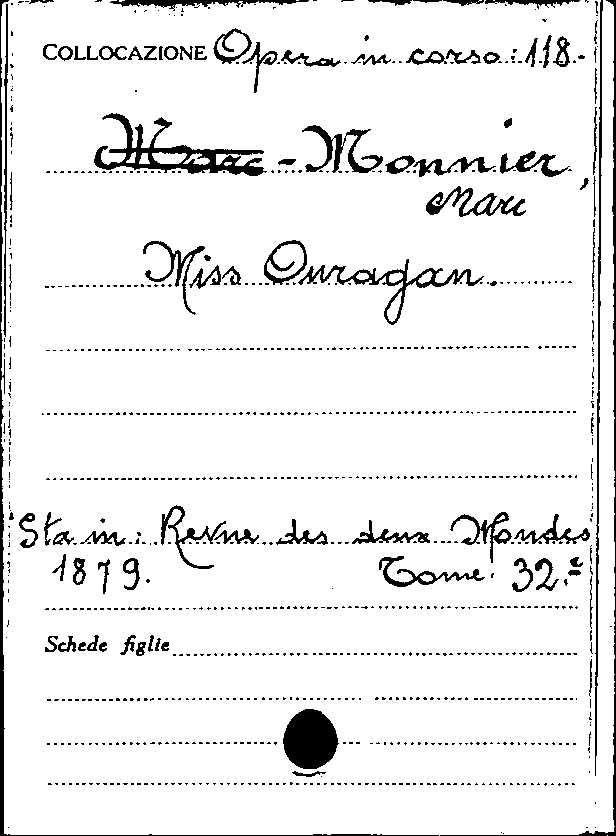 COLLOCAZIONE Opera in corso: 118.
Marc - Monnier,
Marc
Miss Ouragan.
Sta in: Revue des deux Mondes
1879. Tome: 32.e
Schede figlie